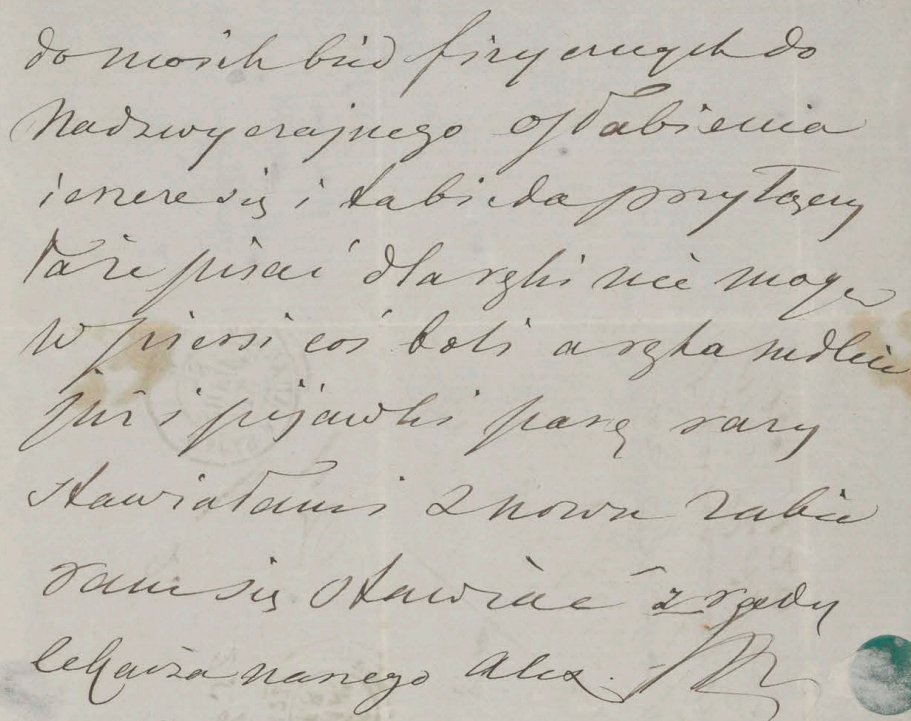 do moich bied fizycznych do
Nadzwyczajnego osłabienia
i ta bieda przyłączy
że pisać dla ręki nie mogę
w piersi coś boli a ręka mdleie
już i pijawki parę razy
stawiałam i znowu zabie
ram się stawiać z rady
lekarza naszego Alex.